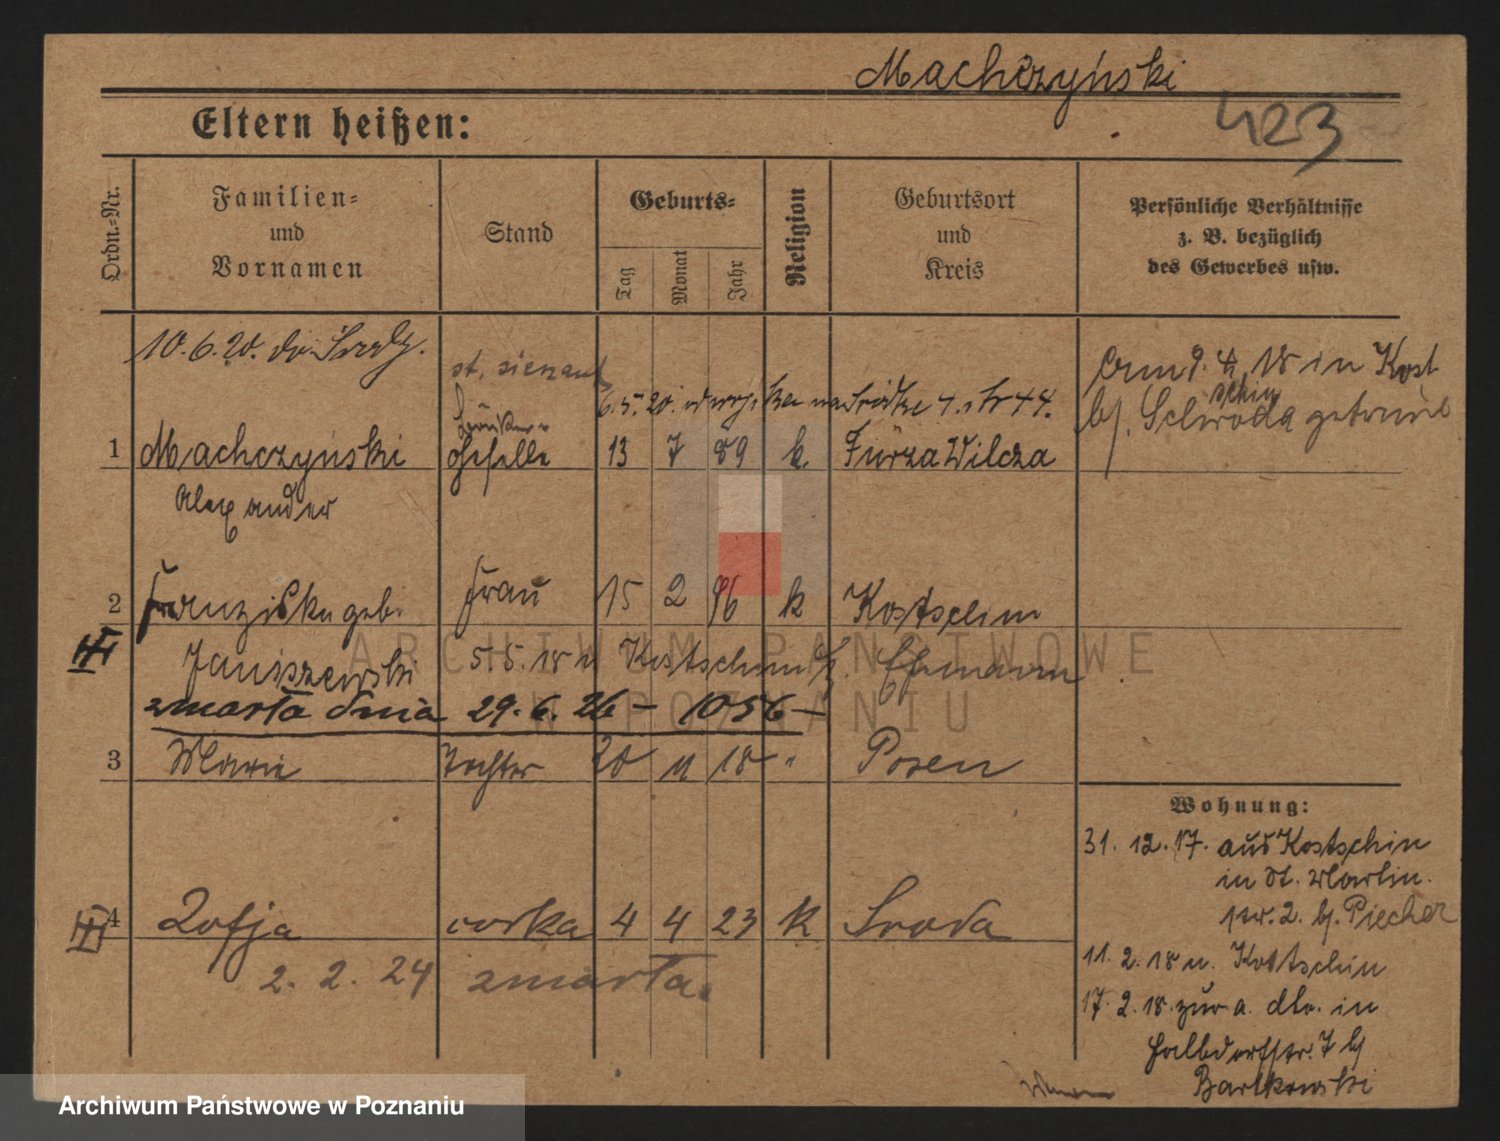 Machczyński
423
Eltern heißen:
Ordn.-Nr.
Familien-
und
Vornamen
Stand
Geburts-
Tag
Monat
Jahr
Religion
Geburtsort
und
Kreis
Persönliche Verhältnisse
z. B. bezüglich
des Gewerbes usw.
10.6.20. do Środy.
6.5.20.
44.
9.4.18 in Kostschin
bj. Schroda getraut
1 Machczyński Geselle 13 7 89 k. Furza Wilcza
Alexander
2 Franziska geb. Frau 15 2 96 k Kostschin
Janiszewski 5.5.18 n Kostschin bj. Ehemann
zmarła dnia 29.6.26 – 1056 –
3 Marie Tochter 20 11 18 " Posen
4 Zofja corka 4 4 23 k Sroda
2.2.24 zmarła.
Wohnung:
31.12.17. aus Kostschin
in St. Martin.
str. 2. bj. Piecher
11.2.18 n. Kostschin
17.2.18. zur a. dto. in
Halbdorfstr. 7 bj
Bartkowski
ARCHIWUM PAŃSTWOWE
W POZNANIU
Archiwum Państwowe w Poznaniu